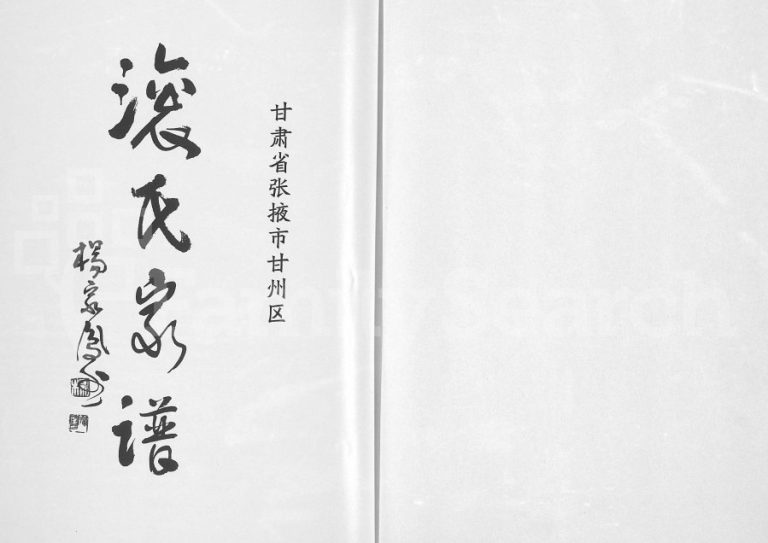 甘肃省张掖市甘州区
滚氏家谱
楊家鳳
FamilySearch